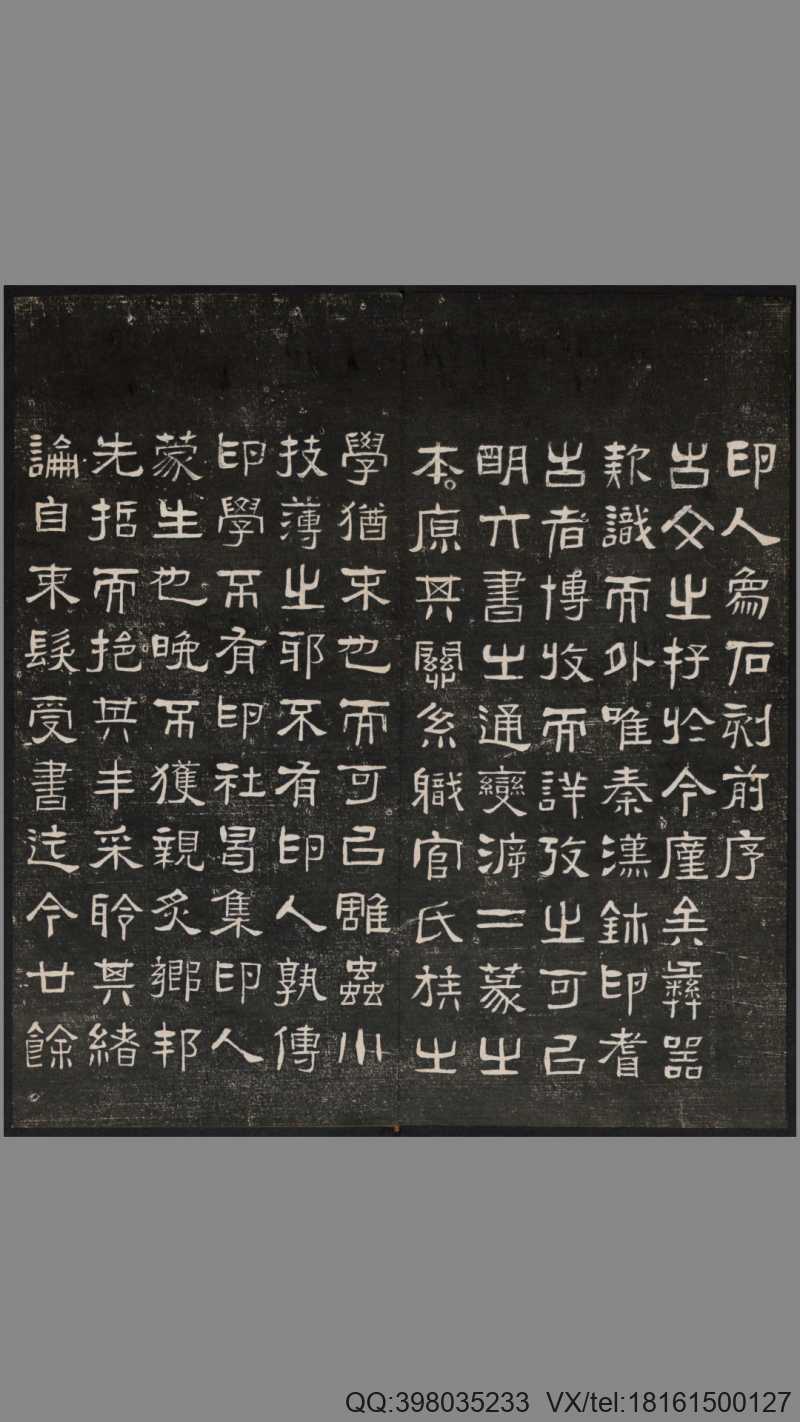 印人爲石刻前序
古文之抒於今廑矣彝器
款識而外唯秦漢鉥印耆
古者博收而詳攷之可㠯
朙六書之通變泝二篆之
本原其關系職官氏族之
學猶末也而可㠯雕蟲小
技薄之耶不有印人孰傳
印學不有印社曷集印人
蒙生也晚不獲親炙鄉邦
先哲而挹其丰采聆其緒
論自束髮受書迄今廿餘
QQ:398035233 VX/tel:18161500127